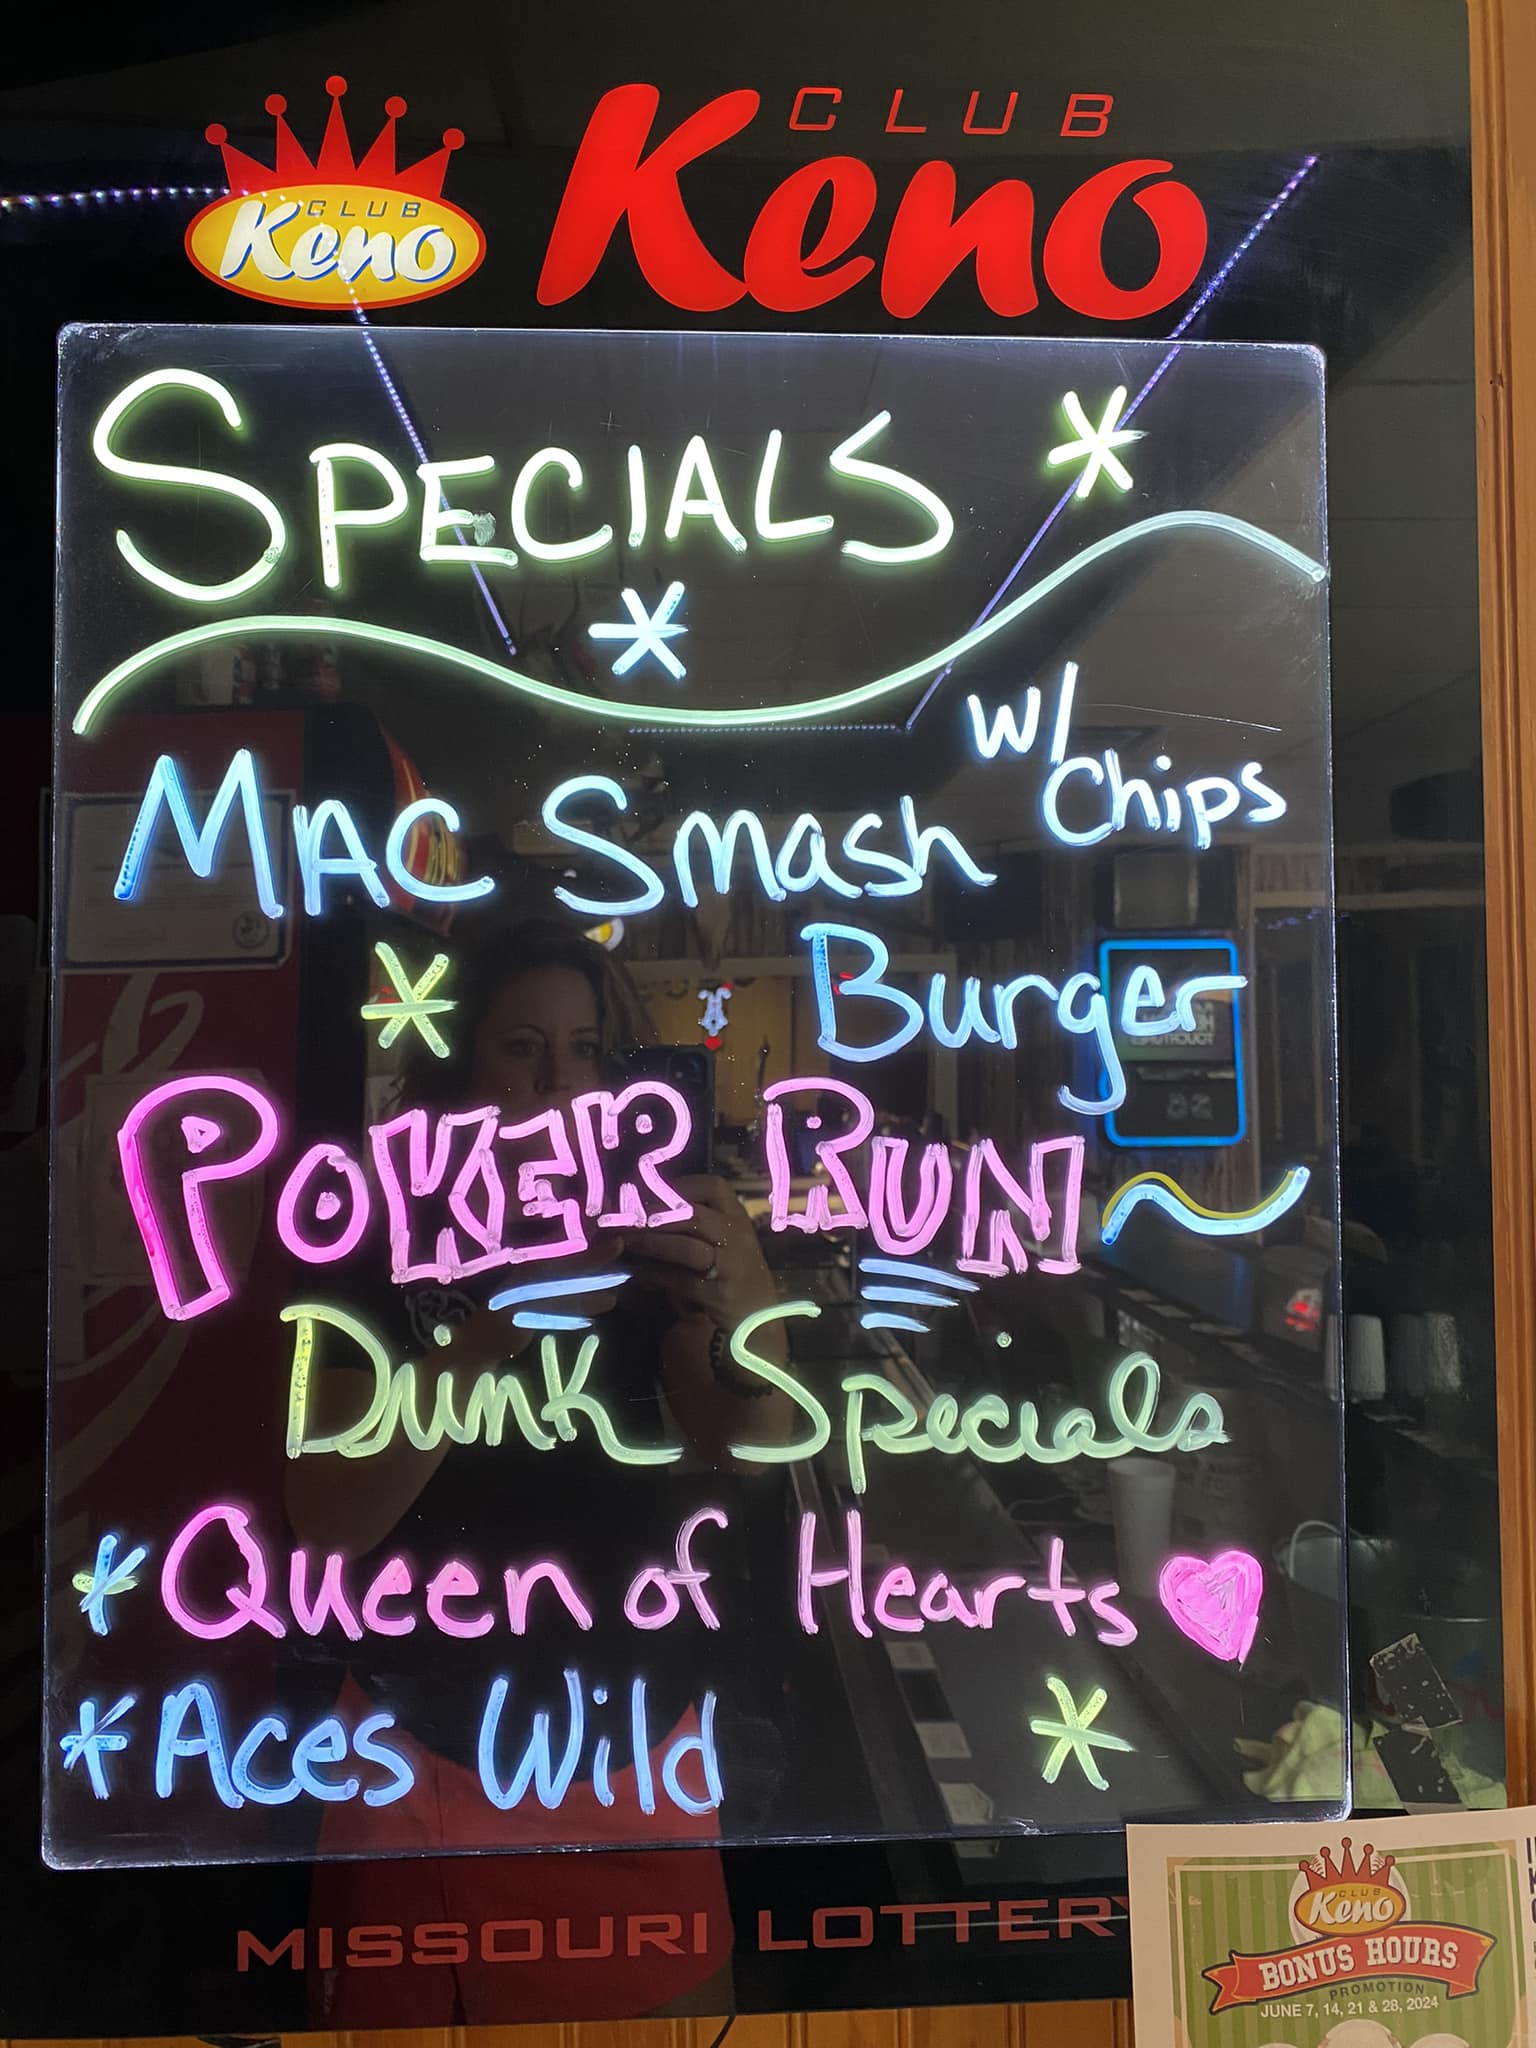 CLUB
Keno
CLUB
Keno
SPECIALS
MAC Smash w/ Chips
Burger
POKER RUN
Drink Specials
Queen of Hearts
Aces Wild
MISSOURI LOTTERY
CLUB
Keno
BONUS HOURS
PROMOTION
JUNE 7, 14, 21 & 28, 2024